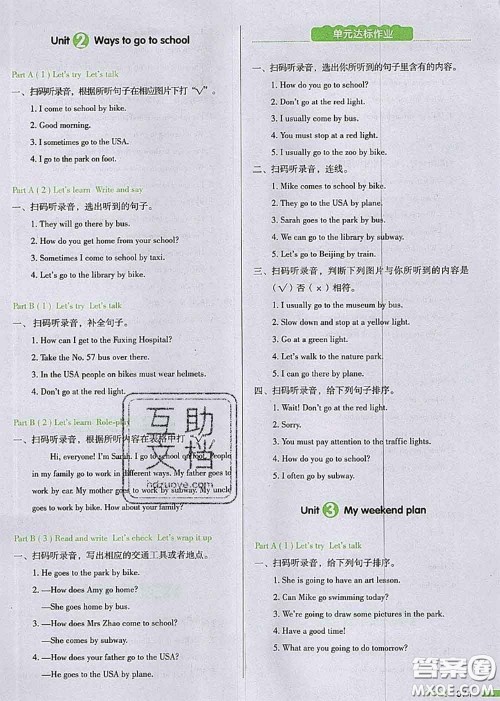 Unit 2 Ways to go to school
Part A ( 1 ) Let's try Let's talk
一、扫码听录音，根据所听句子在相应图片下打“√”。
1. I come to school by bike.
2. Good morning.
3. I sometimes go to the USA.
4. I go to the park on foot.
Part A ( 2 ) Let's learn Write and say
一、扫码听录音，选出听到的句子。
1. They will go there by bus.
2. How do you get home from your school?
3. Sometimes I come to school by taxi.
4. Let's go to the library by bike.
Part B ( 1 ) Let's try Let's talk
一、扫码听录音，补全句子。
1. How can I get to the Fuxing Hospital?
2. Take the No. 57 bus over there.
3. In the USA people on bikes must wear helmets.
4. Don't go at the red light.
Part B ( 2 ) Let's learn Role-play
一、扫码听录音，根据所听内容在表格中打
Hi, everyone! I'm Sarah. I go to school on foot. People
in my family go to work in different ways. My father goes to
work by bus. My mother goes to work by subway. My brother
goes to work by bike.
Part B ( 3 ) Read and write Let's check Let's wrap it up
一、扫码听录音，写出相应的交通工具或者地点。
1. He goes to the park by bike.
2. —How does Amy go home?
—She goes home by bus.
3. —How does Mrs Zhao come to school?
—She comes by subway.
4. —How does your father go to the USA?
—He goes to the USA by plane.
单元达标作业
一、扫码听录音，选出你所听到的句子里含有的内容。
1. How do you go to school?
2. Don't go at the red light.
3. I usually come by bus.
4. You must stop at a red light.
5. I usually go to the zoo by bike.
二、扫码听录音，连线。
1. Mike comes to school by bike.
2. They go to the USA by plane.
3. Sarah goes to the park by bus.
4. We can go to the library by subway.
5. Let's go to Beijing by train.
三、扫码听录音，判断下列图片与你所听到的内容是
（√）否（×）相符。
1. I usually go to the museum by bus.
2. Slow down and stop at a yellow light.
3. Go at a green light.
4. Let's walk to the nature park.
5. I can go there by plane.
四、扫码听录音，给下列句子排序。
1. Wait! Don't go at the red light.
2. Sorry.
3. You must pay attention to the traffic lights.
4. OK.
5. I often go by subway.
Unit 3 My weekend plan
Part A ( 1 ) Let's try Let's talk
一、扫码听录音，给下列句子排序。
1. She is going to have an art lesson.
2. Can Mike go swimming today?
3. We're going to draw some pictures in the park.
4. Have a good time!
5. What are you going to do tomorrow?
互助
文档
hdzuoye.com
答案圈
MXQE.COM